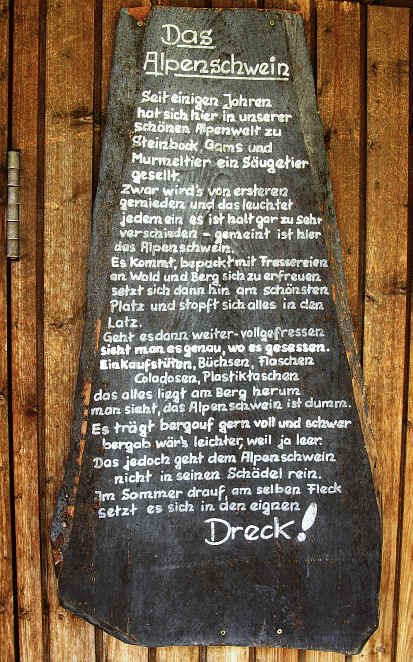 Das
Alpenschwein
Seit einigen Jahren
hat sich hier in unserer
schönen Alpenwelt zu
Steinbock, Gams und
Murmeltier ein Säugetier
gesellt.
Zwar wird's von ersteren
gemieden und das leuchtet
jedem ein es ist halt gar zu sehr
verschieden - gemeint ist hier
das Alpenschwein.
Es kommt, bepackt mit Fressereien
an Wald und Berg sich zu erfreuen
setzt sich dann hin am schönsten
Platz und stopft sich alles in den
Latz.
Geht es dann weiter-vollgefressen
sieht man es genau, wo es gesessen.
Einkaufstüten, Büchsen, Flaschen
Coladosen, Plastiktaschen
das alles liegt am Berg herum
man sieht, das Alpenschwein ist dumm.
Es trägt bergauf gern voll und schwer
bergab wär's leichter, weil ja leer.
Das jedoch geht dem Alpenschwein
nicht in seinen Schädel rein.
Im Sommer drauf, am selben Fleck
setzt es sich in den eignen
Dreck!